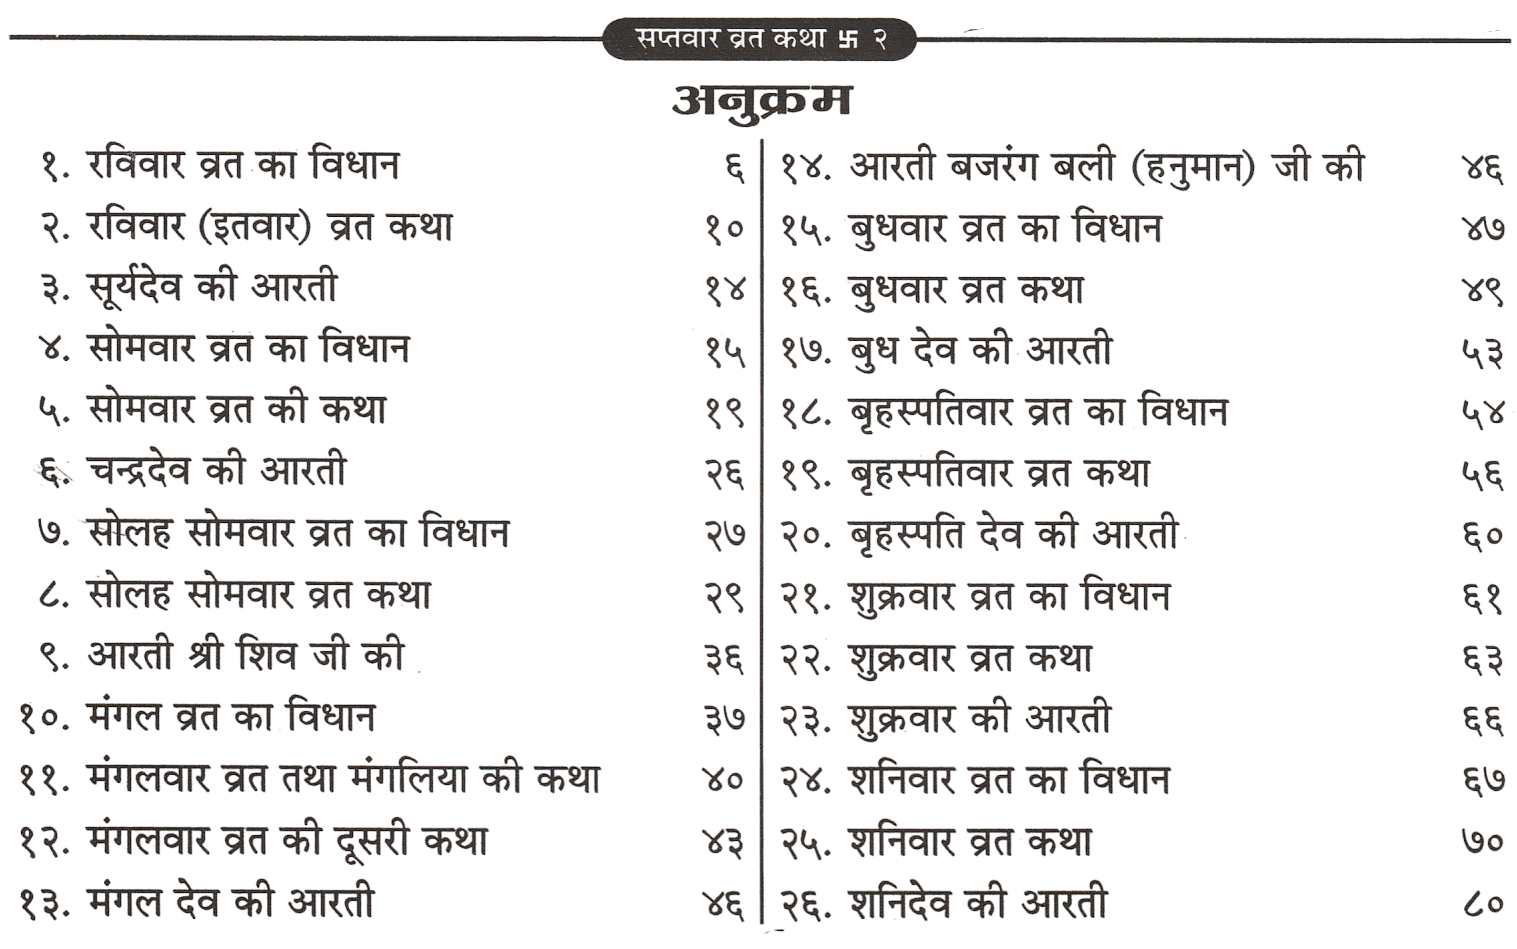 सप्तवार व्रत कथा 卐 २
अनुक्रम
१. रविवार व्रत का विधान ६
२. रविवार (इतवार) व्रत कथा १०
३. सूर्यदेव की आरती १४
४. सोमवार व्रत का विधान १५
५. सोमवार व्रत की कथा १९
६. चन्द्रदेव की आरती २६
७. सोलह सोमवार व्रत का विधान २७
८. सोलह सोमवार व्रत कथा २९
९. आरती श्री शिव जी की ३६
१०. मंगल व्रत का विधान ३७
११. मंगलवार व्रत तथा मंगलिया की कथा ४०
१२. मंगलवार व्रत की दूसरी कथा ४३
१३. मंगल देव की आरती ४६
१४. आरती बजरंग बली (हनुमान) जी की ४६
१५. बुधवार व्रत का विधान ४७
१६. बुधवार व्रत कथा ४९
१७. बुध देव की आरती ५३
१८. बृहस्पतिवार व्रत का विधान ५४
१९. बृहस्पतिवार व्रत कथा ५६
२०. बृहस्पति देव की आरती ६०
२१. शुक्रवार व्रत का विधान ६१
२२. शुक्रवार व्रत कथा ६३
२३. शुक्रवार की आरती ६६
२४. शनिवार व्रत का विधान ६७
२५. शनिवार व्रत कथा ७०
२६. शनिदेव की आरती ८०